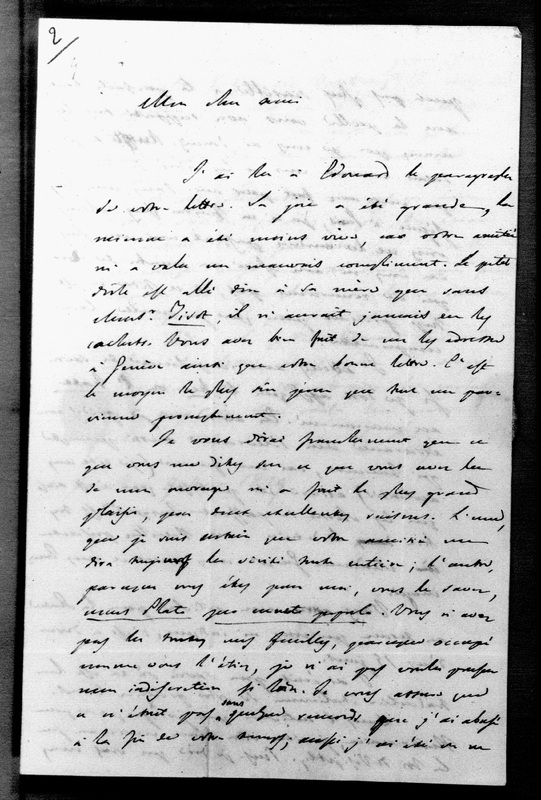 2/
Mon cher ami
J'ai lu à Edouard le paragraphe
de votre lettre. Sa joie a été grande, la
mienne a été moins vive, car votre amitié
m'a valu un mauvais compliment. Le petit
drôle est allé dire à sa mère que sans
Mons.r Tissot, il n'aurait jamais eu les
cachets. Vous avez bien fait de me les adresser
à Genève ainsi que votre bonne lettre. C'est
le moyen le plus sûr pour que tout me par-
vienne promptement.
Je vous dirai franchement que ce
que vous me dites sur ce que vous avez lu
de mon ouvrage m'a fait le plus grand
plaisir, pour deux excellentes raisons. L'une,
que je suis certain que votre amitié me
dira toujours la vérité tout entière; l'autre,
parceque vous êtes pour moi, vous le savez,
unus Plato pro cuncto populo. Vous n'avez
pas lu toutes mes feuilles, parceque occupé
comme vous l'étiez, je n'ai pas voulu pousser
mon indiscrétion si loin. Je vous assure que
ce n'était pas sans quelque remords que j'ai abusé
à la fin de votre temps; aussi j'ai été on ne